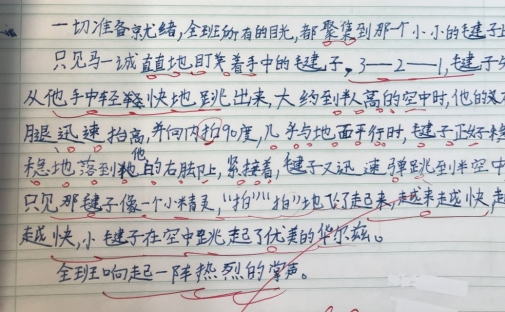 一切准备就绪,全班所有的目光,都聚集到那一个小小的毽子上
只见马一诚直直地盯着手中的毽子,3—2—1,毽子
从他手中轻快地跳出来,大约到半人高的空中时,他的
腿迅速抬高,并向内拍90度,几乎与地面平行时,毽子正好稳
稳地落到他的右脚上,紧接着,毽子又迅速弹跳到半空中
只见那毽子像一个小精灵,“拍”“拍”地飞了起来,越来越快,
越快,小毽子在空中跳起了优美的华尔兹。
全班响起一阵热烈的掌声。